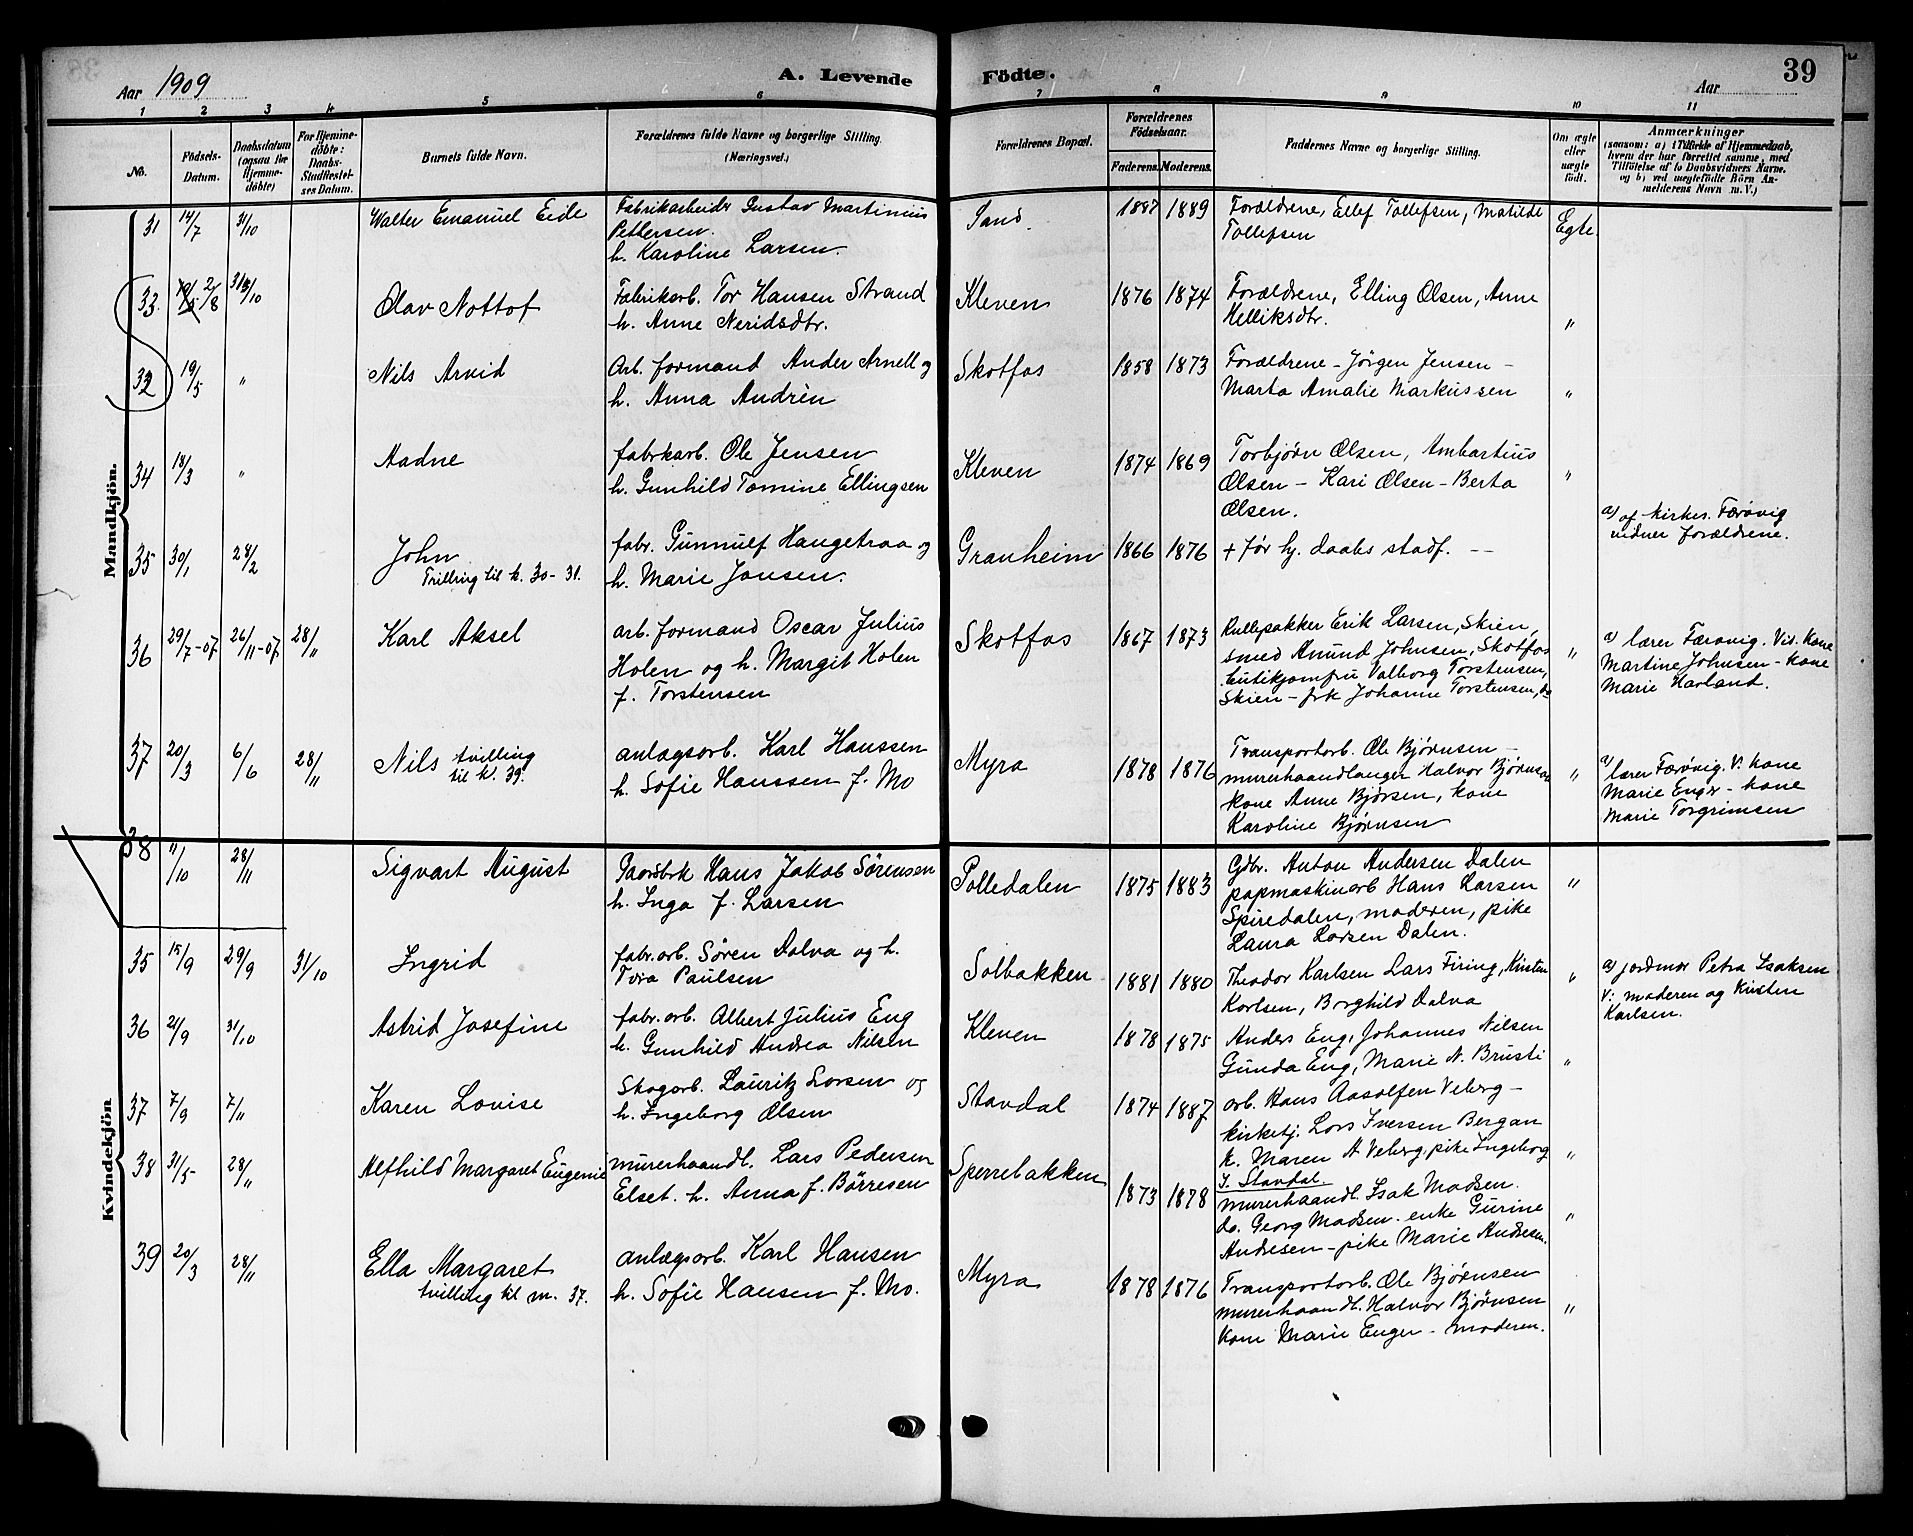 Aar 1909
A. Levende Födte.
39
Aar
1 2 3 4 5 6 7 8 9 10 11
No.
Födsels-Datum.
Daabsdatum (ogsaa for Hjemmedöbte)
For Hjemmedöbte: Daabs-Stadfestelses Datum.
Barnets fulde Navn.
Forældrenes fulde Navne og borgerlige Stilling.
(Næringsvei.)
Forældrenes Bopæl.
Forældrenes Födselsaar.
Faderens. Moderens.
Faddernes Navne og borgerlige Stilling.
Om ægte eller uægte födt.
Anmærkninger
(saasom: a) i Tilfælde af Hjemmedaab,
hvem der har forrettet samme, med
Tilföielse af to Daabsvidners Navne.
og b) ved uægtefödte Börn An-
melderens Navn m. V.)
Mandkjön.
31 14/7 31/10 Walter Emanuel Eide
Fabrikarbeider Gustav Martinius
Pettersen.
h. Karoline Larsen.
Sand. 1887 1889
Forældrene, Ellef Tollefsen, Matilde
Tollefsen
Egte.
33. 2/8 31/10 Olav Nottof
Fabrikarb. Tor Hansen Strand
h. Anne Neridsdtr.
Kleven 1876 1874
Forældrene, Elling Olsen, Anne
Helliksdtr.
"
32 19/5 " Nils Arvid
Arb. formand Ander Arnell og
h. Anna Andrèn
Skotfos 1858 1873
Forældrene - Jörgen Jensen -
Marta Amalie Markussen
"
34 18/3 " Aadne
fabrkarb. Ole Jensen
h. Gunhild Tomine Ellingsen
Kleven 1874 1869
Torbjørn Olsen, Ambartius
Olsen - Kari Olsen - Berta
Olsen.
"
35 30/1 28/2 John
Trilling til k. 30-31.
fabr. Gunnulf Haugetraa og
h. Marie Jansen.
Granheim 1866 1876
+ før hj. daabs stadf. --
a) af kirkes. Færøvig
vidner forældrene.
36 29/7-07 26/11-07 28/11 Karl Aksel
arb. formand Oscar Julius
Holen og h. Margit Holen
f. Torstensen
Skotfos 1867 1873
Rullepakker Erik Larsen, Skien,
smed Anund Johnsen, Skotfos
butikjomfru Valborg Torstensen,
Skien - frk Johanne Torstensen, do
"
a) lærer Færøvig. Vid. kone
Martine Johnsen - kone
Marie Havland.
37 20/3 6/6 28/11 Nils tvilling
til k. 39.
anlægsarb. Karl Hanssen
h. Sofie Hanssen f. Mo
Myra 1878 1876
Transportarb. Ole Bjørnsen -
murerhaandlanger Halvor Bjørnsen
kone Anne Bjørsen, kone
Karoline Bjørnsen
"
a) lærer Færøvig. V: kone
Marie Enger - kone
Marie Torgrimsen
38 11/10 28/11 Sigvart August
Gaardbrk Hans Jakob Sörensen
h. Inga f. Larsen
Polledalen 1875 1883
Gdbr. Anton Andersen Dalen
papmaskinarb Hans Larsen
Spiredalen, moderen, pike
Laura Larsen Dalen.
"
Kvindekjön
35 15/9 29/9 31/10 Ingrid
fabr. arb. Søren Dalva og h.
Tora Paulsen
Solbakken 1881 1880
Theodor Karlsen Lars Firing, Kirsten
Karlsen, Borghild Dalva
"
a) jordmor Petra Isaksen
V: moderen og Kirsten
Karlsen.
36 21/9 31/10 Astrid Josefine
fabr. arb. Albert Julius Eng
h. Gunhild Andrea Nilsen
Kleven 1878 1875
Anders Eng, Johannes Nilsen
Gunda Eng, Marie N. Brusti
"
37 7/9 7/11 Karen Lovise
Skogarb. Lauritz Larsen og
h. Ingeborg Olsen
Stavdal 1874 1887
arb. Hans Aasolfen Veberg -
kirketj. Lars Iversen Bergan
k. Maren A. Veberg, pike Ingeborg
I. Stavdal.
"
38 31/5 28/11 Alfhild Margaret Eugenie
murerhaandl. Lars Pedersen
Elset. h. Anna f. Børresen
Sperrebakken 1873 1878
murerhaandl. Isak Madsen.
do. Georg Madsen. enke Gurine
Andresen - pike Marie Andresen.
"
39 20/3 28/11 Ella Margaret
tvilling til m. 37.
anlægsarb. Karl Hansen
h. Sofie Hansen f. Mo.
Myra 1878 1876
Transportarb. Ole Bjørnsen
murerhaandl. Halvor Bjørnsen
Kone Marie Enger - moderen.
"